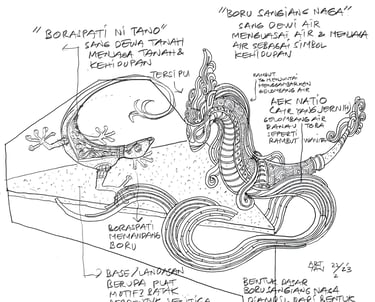 "BORASPATI NI TANO"
SANG DEWA TANAH
MENJAGA TANAH &
KEHIDUPAN
"BORU SANGIANG NAGA"
SANG DEWI AIR
MENGUASAI AIR & MENJAGA
AIR SEBAGAI SIMBOL
KEHIDUPAN
TERSIPU
RAMBUT
MENGGAMBARKAN
GELOMBANG AIR
AEK NATIO
(AIR YANG JERNIH)
GELOMBANG AIR
DANAU TOBA
SEPERTI
RAMBUT WANITA
BORASPATI
MEMANDANG
BORU
BASE/LANDASAN
BERUPA PLAT
MOTIF2 BATAK
ART
22/23
2
BENTUK DASAR
BORU SANGIANG NAGA
DIAMBIL DARI BENTUK